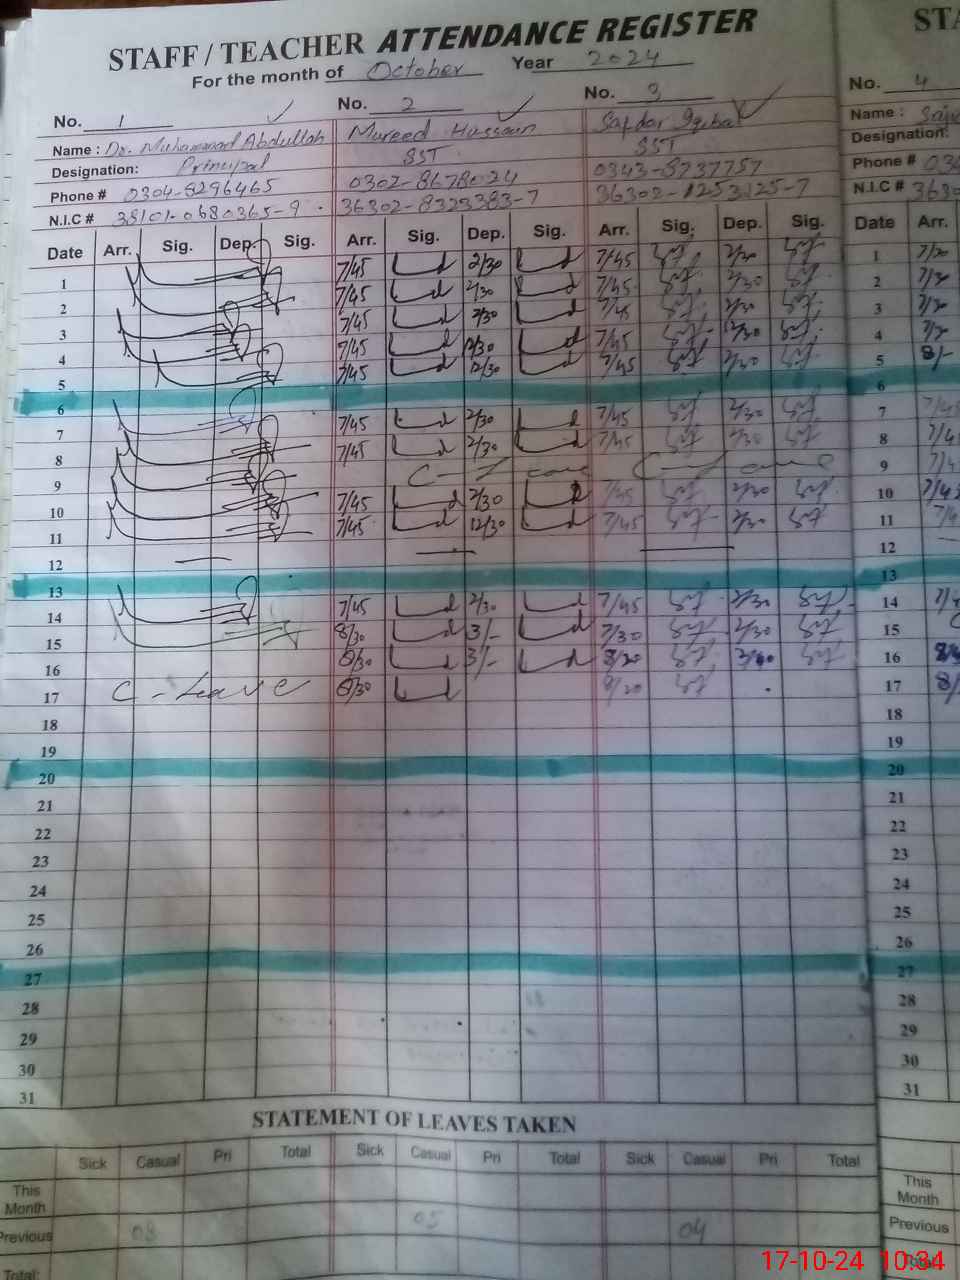 STAFF / TEACHER ATTENDANCE REGISTER
For the month of October Year 2024
No. 1 No. 2 No. 3 No. 4
Name : Dr. Muhammad Abdullah Mureed Hussain Safdar Iqbal Name :
Designation: Principal SST SST Designation:
Phone # 0304-8296465 0302-8678024 0343-8737757 Phone # 030
N.I.C # 38101-0680365-9 36302-8323383-7 36302-1253125-7 N.I.C # 3630
Date Arr. Sig. Dep. Sig. Arr. Sig. Dep. Sig. Arr. Sig. Dep. Sig. Date Arr.
1 7/45 2/30 7/45 2/30 1 7/20
2 7/45 2/30 7/45 2/30 2 7/30
3 7/45 2/30 7/45 2/30 3 7/20
4 7/45 12/30 7/45 12/30 4 7/20
5 7/45 12/30 7/45 2/30 5 8/-
6 6
7 7/45 2/30 7/45 2/30 7 7/45
8 7/45 2/30 7/45 2/30 8 7/4
9 9 7/4
10 7/45 2/30 7/45 2/30 10 7/45
11 7/45 12/30 7/45 2/30 11 7/4
12 — — — 12
13 13
14 7/45 2/30 7/45 2/30 14 7/
15 8/30 3/- 7/30 2/30 15
16 8/30 3/- 8/20 16
17 C-Leave 8/30 8/20 17 8/
18 18
19 19
20 20
21 21
22 22
23 23
24 24
25 25
26 26
27 27
28 28
29 29
30 30
31 31
STATEMENT OF LEAVES TAKEN
Sick Casual Pri Total Sick Casual Pri Total Sick Casual Pri Total
This Month This Month
Previous 03 05 04 Previous
Total: Total:
17-10-24 10:34